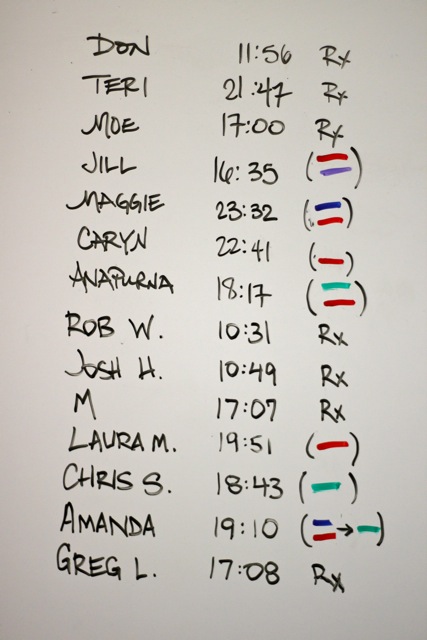 DON 11:56 Rx
TERI 21:47 Rx
MOE 17:00 Rx
JILL 16:35 ( )
MAGGIE 23:32 ( )
CARYN 22:41 ( )
ANAPURNA 18:17 ( )
ROB W. 10:31 Rx
JOSH H. 10:49 Rx
M 17:07 Rx
LAURA M. 19:51 ( )
CHRIS S. 18:43 ( )
AMANDA 19:10 ( → )
GREG L. 17:08 Rx